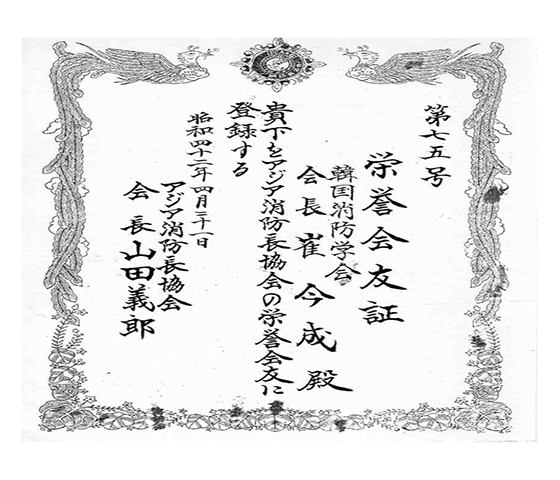 第七五号
栄誉会友証
韓国消防学会
会長崔今成殿
貴下をアジア消防長協会の栄誉会友に
登録する
昭和四十二年四月二十一日
アジア消防長協会
会長山田義郎